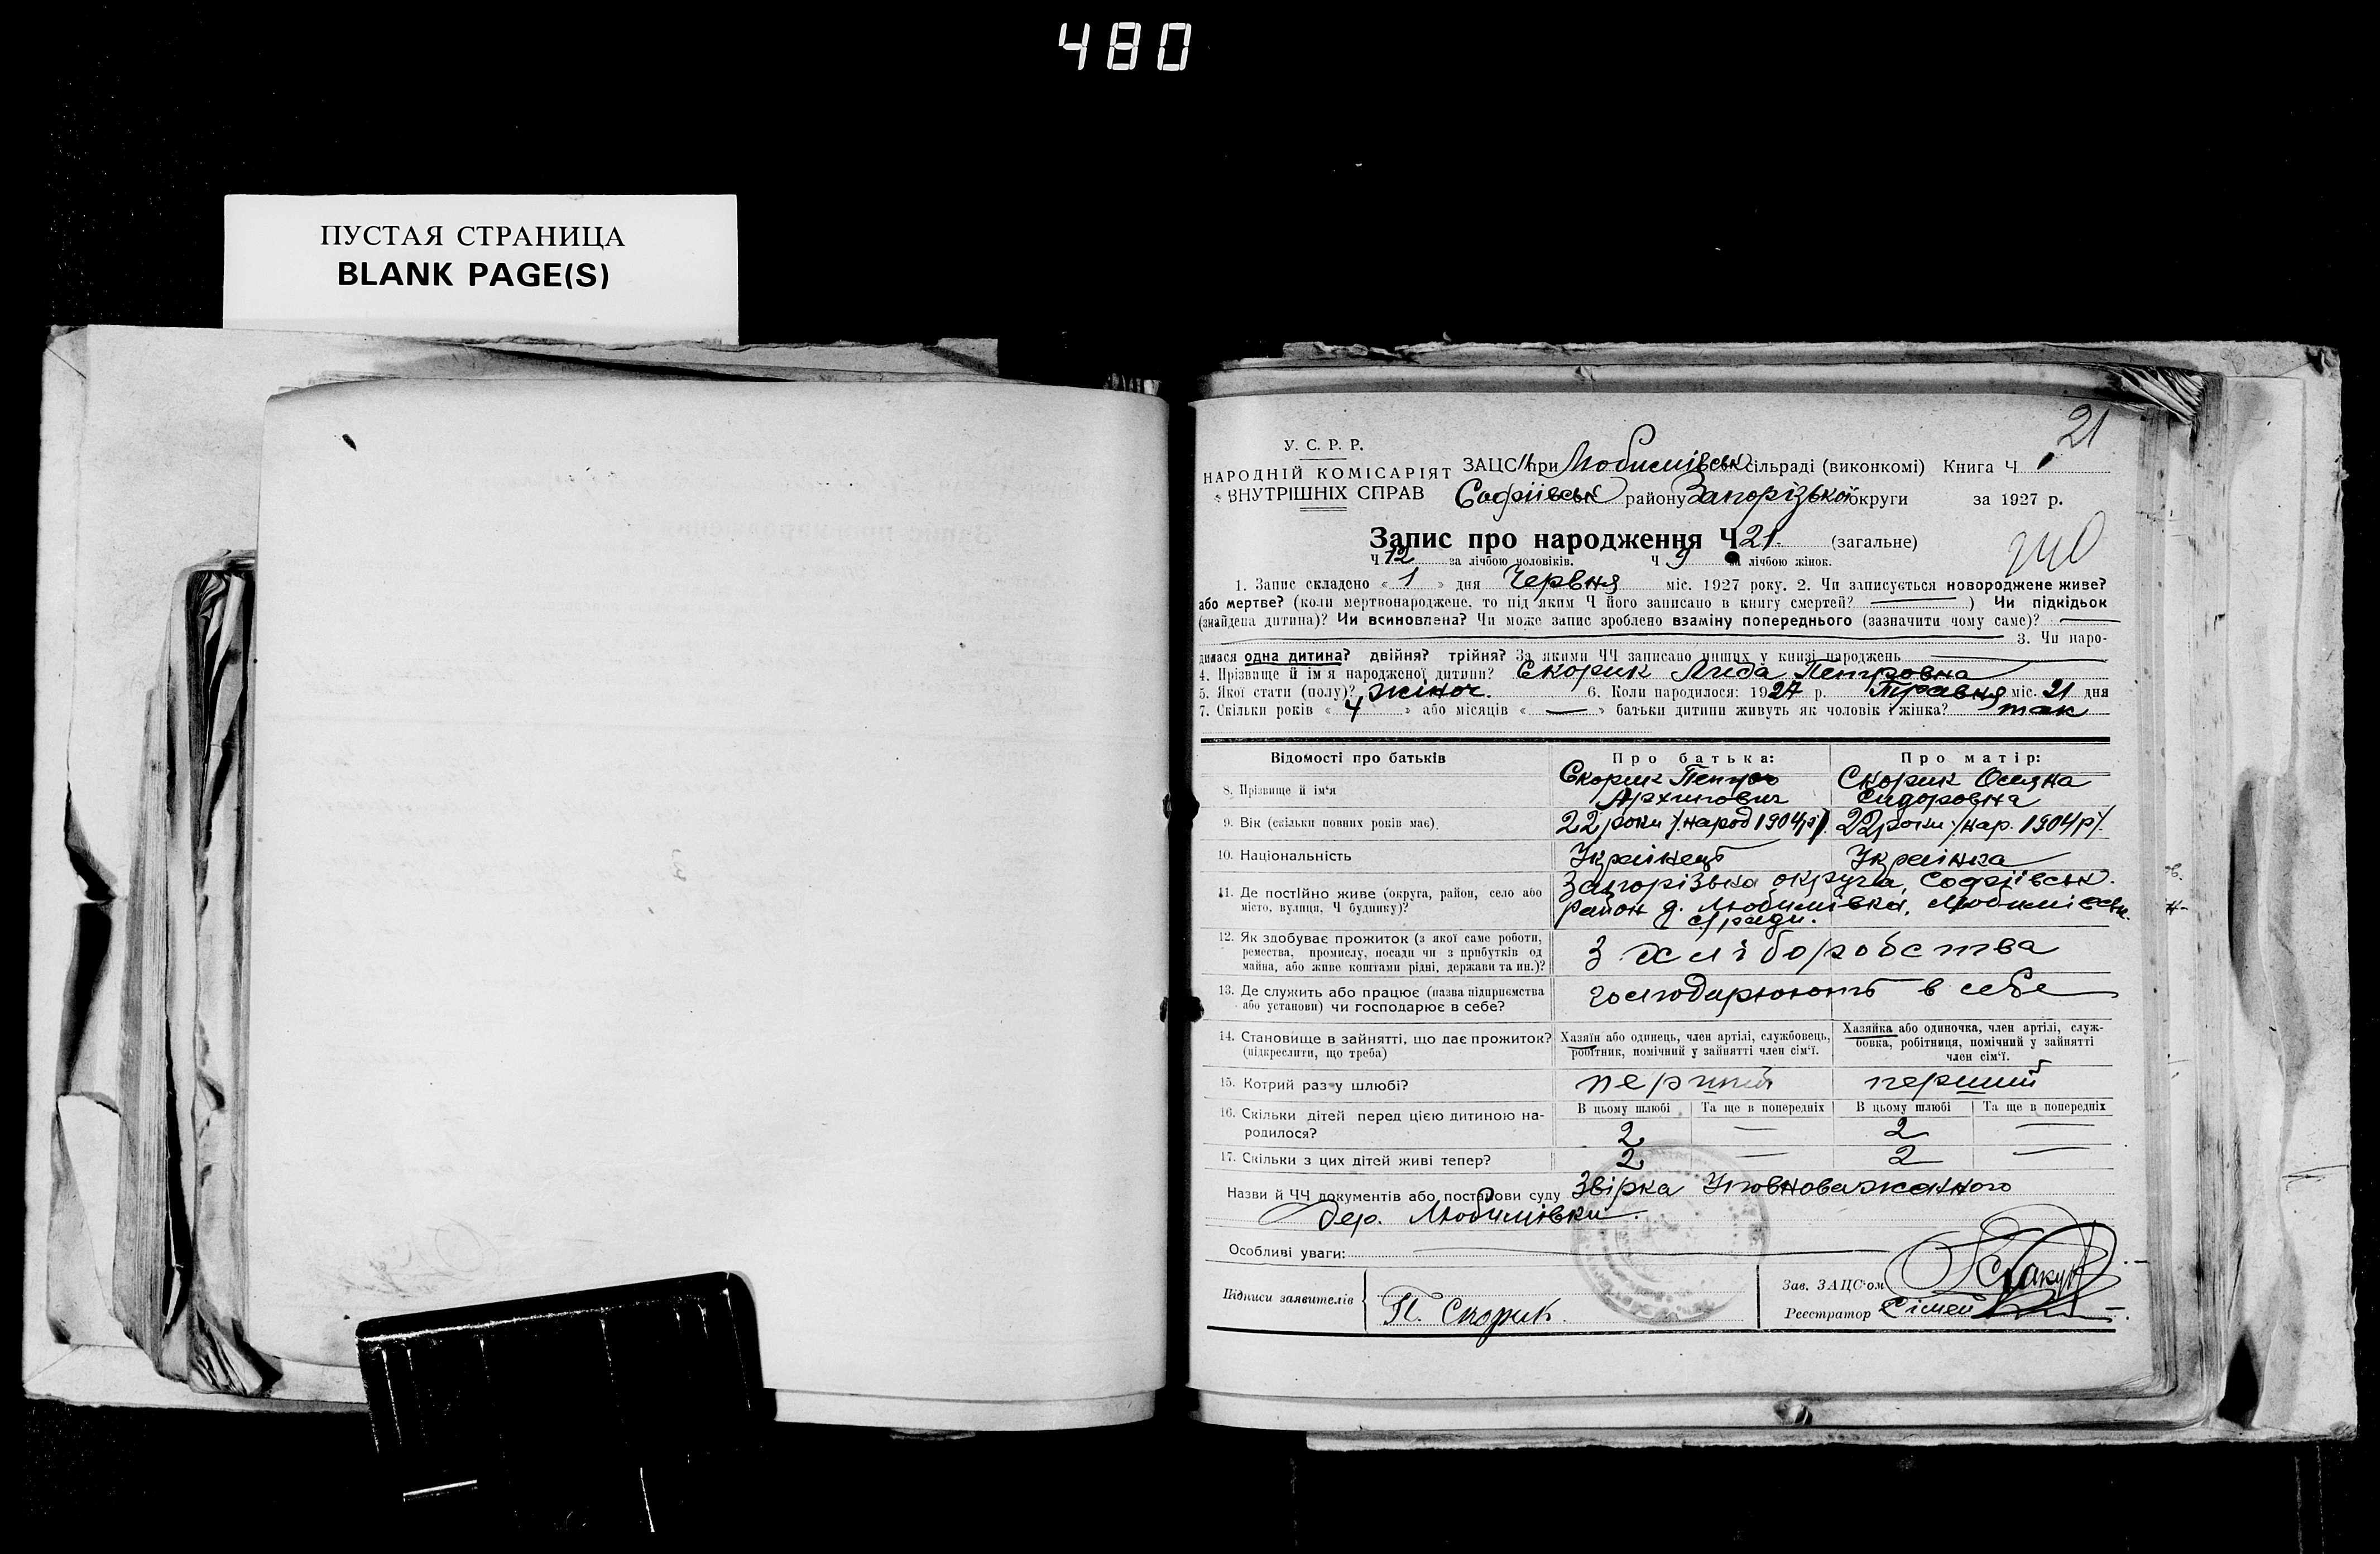 480
ПУСТАЯ СТРАНИЦА
BLANK PAGE(S)
21
У. С. Р. Р.
НАРОДНІЙ КОМІСАРІЯТ
ВНУТРІШНІХ СПРАВ
ЗАЦС при Любимівськ сільраді (виконкомі) Книга Ч
Софіівськ району Запорізької округи за 1927 р.
Запис про народження Ч 21 (загальне)
240
Ч 12 за лічбою чоловіків. Ч 9 за лічбою жінок.
1. Запис складено « 1 » дня Червня міс. 1927 року. 2. Чи записується новороджене живе?
або мертве? (коли мертвонароджене, то під яким Ч його записано в книгу смертей? — ) Чи підкідьок
(знайдена дитина)? Чи всиновлена? Чи може запис зроблено взаміну попереднього (зазначити чому саме)? —
— 3. Чи наро-
дилася одна дитина? двійня? трійня? За якими ЧЧ записано инших у книзі народжень —
4. Прізвище й ім'я народженої дитини? Скорик Лида Петровна
5. Якої стати (полу)? жіноч. 6. Коли народилося: 1927 р. Травня міс. 21 дня
7. Скільки років « 4 » або місяців « — » батьки дитини живуть як чоловік і жінка? так
Відомості про батьків Про батька: Про матір:
8. Прізвище й ім'я Скорик Петро Архипович Скорик Оляна Сидоровна
9. Вік (скільки повних років має). 22 роки /народ 1904р/. 22 роки /нар. 1904р/.
10. Національність Українець Українка
11. Де постійно живе (округа, район, село або
місто, вулиця, Ч будинку)?
Запорізька округа, Софіівськ.
район д. Любимівка, Любимівськ.
с/ради.
12. Як здобуває прожиток (з якої саме роботи,
ремества, промислу, посади чи з прибутків од
майна, або живе коштами рідні, держави та ин.)?
З хліборобства
13. Де служить або працює (назва підприємства
або установи) чи господарює в себе?
господарюють в себе
14. Становище в зайнятті, що дає прожиток?
(підкреслити, що треба)
Хазяїн або одинець, член артілі, службовець,
робітник, помічний у зайнятті член сім'ї.
Хазяйка або одиночка, член артілі, служ-
бовка, робітниця, помічний у зайнятті
член сім'ї.
15. Котрий раз у шлюбі? перший перший
16. Скільки дітей перед цією дитиною на-
родилося?
В цьому шлюбі Та ще в попередніх В цьому шлюбі Та ще в попередніх
2 — 2 —
17. Скільки з цих дітей живі тепер? 2 — 2 —
Назви й ЧЧ документів або постанови суду Звірка Уповноваженного
дер. Любимівки.
Особливі уваги:
Підписи заявителів П. Скорик.
Зав. ЗАЦС'ом
Реєстратор